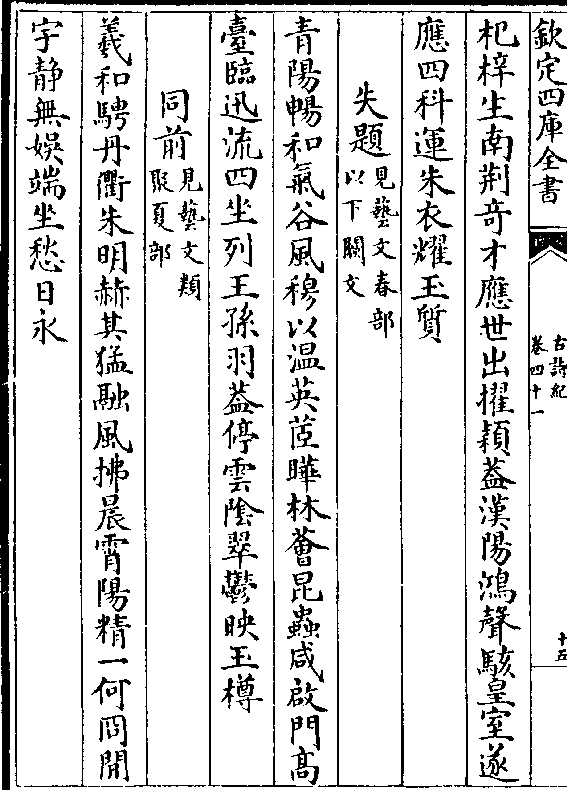 欽定四庫全書
古詩紀
卷四十一
十五
杞梓生南荆奇才應世出擢穎蓋漢陽鴻聲駭皇室遂
應四科運朱衣耀玉質
失題見藝文春部
以下闕文
青陽暢和氣谷風穆以温英茝曄林薈昆蟲咸啟門高
臺臨迅流四坐列王孫羽葢停雲陰翠鬱映玉樽
同前見藝文類
聚夏部
羲和騁丹衢朱明赫其猛融風拂晨霄陽精一何冏閒
宇静無娱端坐愁日永